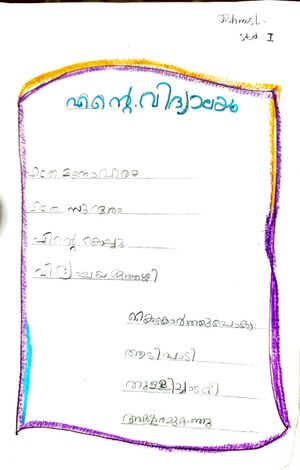 Jishnu.S.L.
Std I
എന്റെ വിദ്യാലയം
എത്ര മനോഹരം
എത്ര സുന്ദരം
എന്റെ കൊച്ചു
വിദ്യാലയ മുത്തശ്ശി
കൈകോർത്തുപോകാം
ആടിപാടി
തുള്ളിച്ചാടി